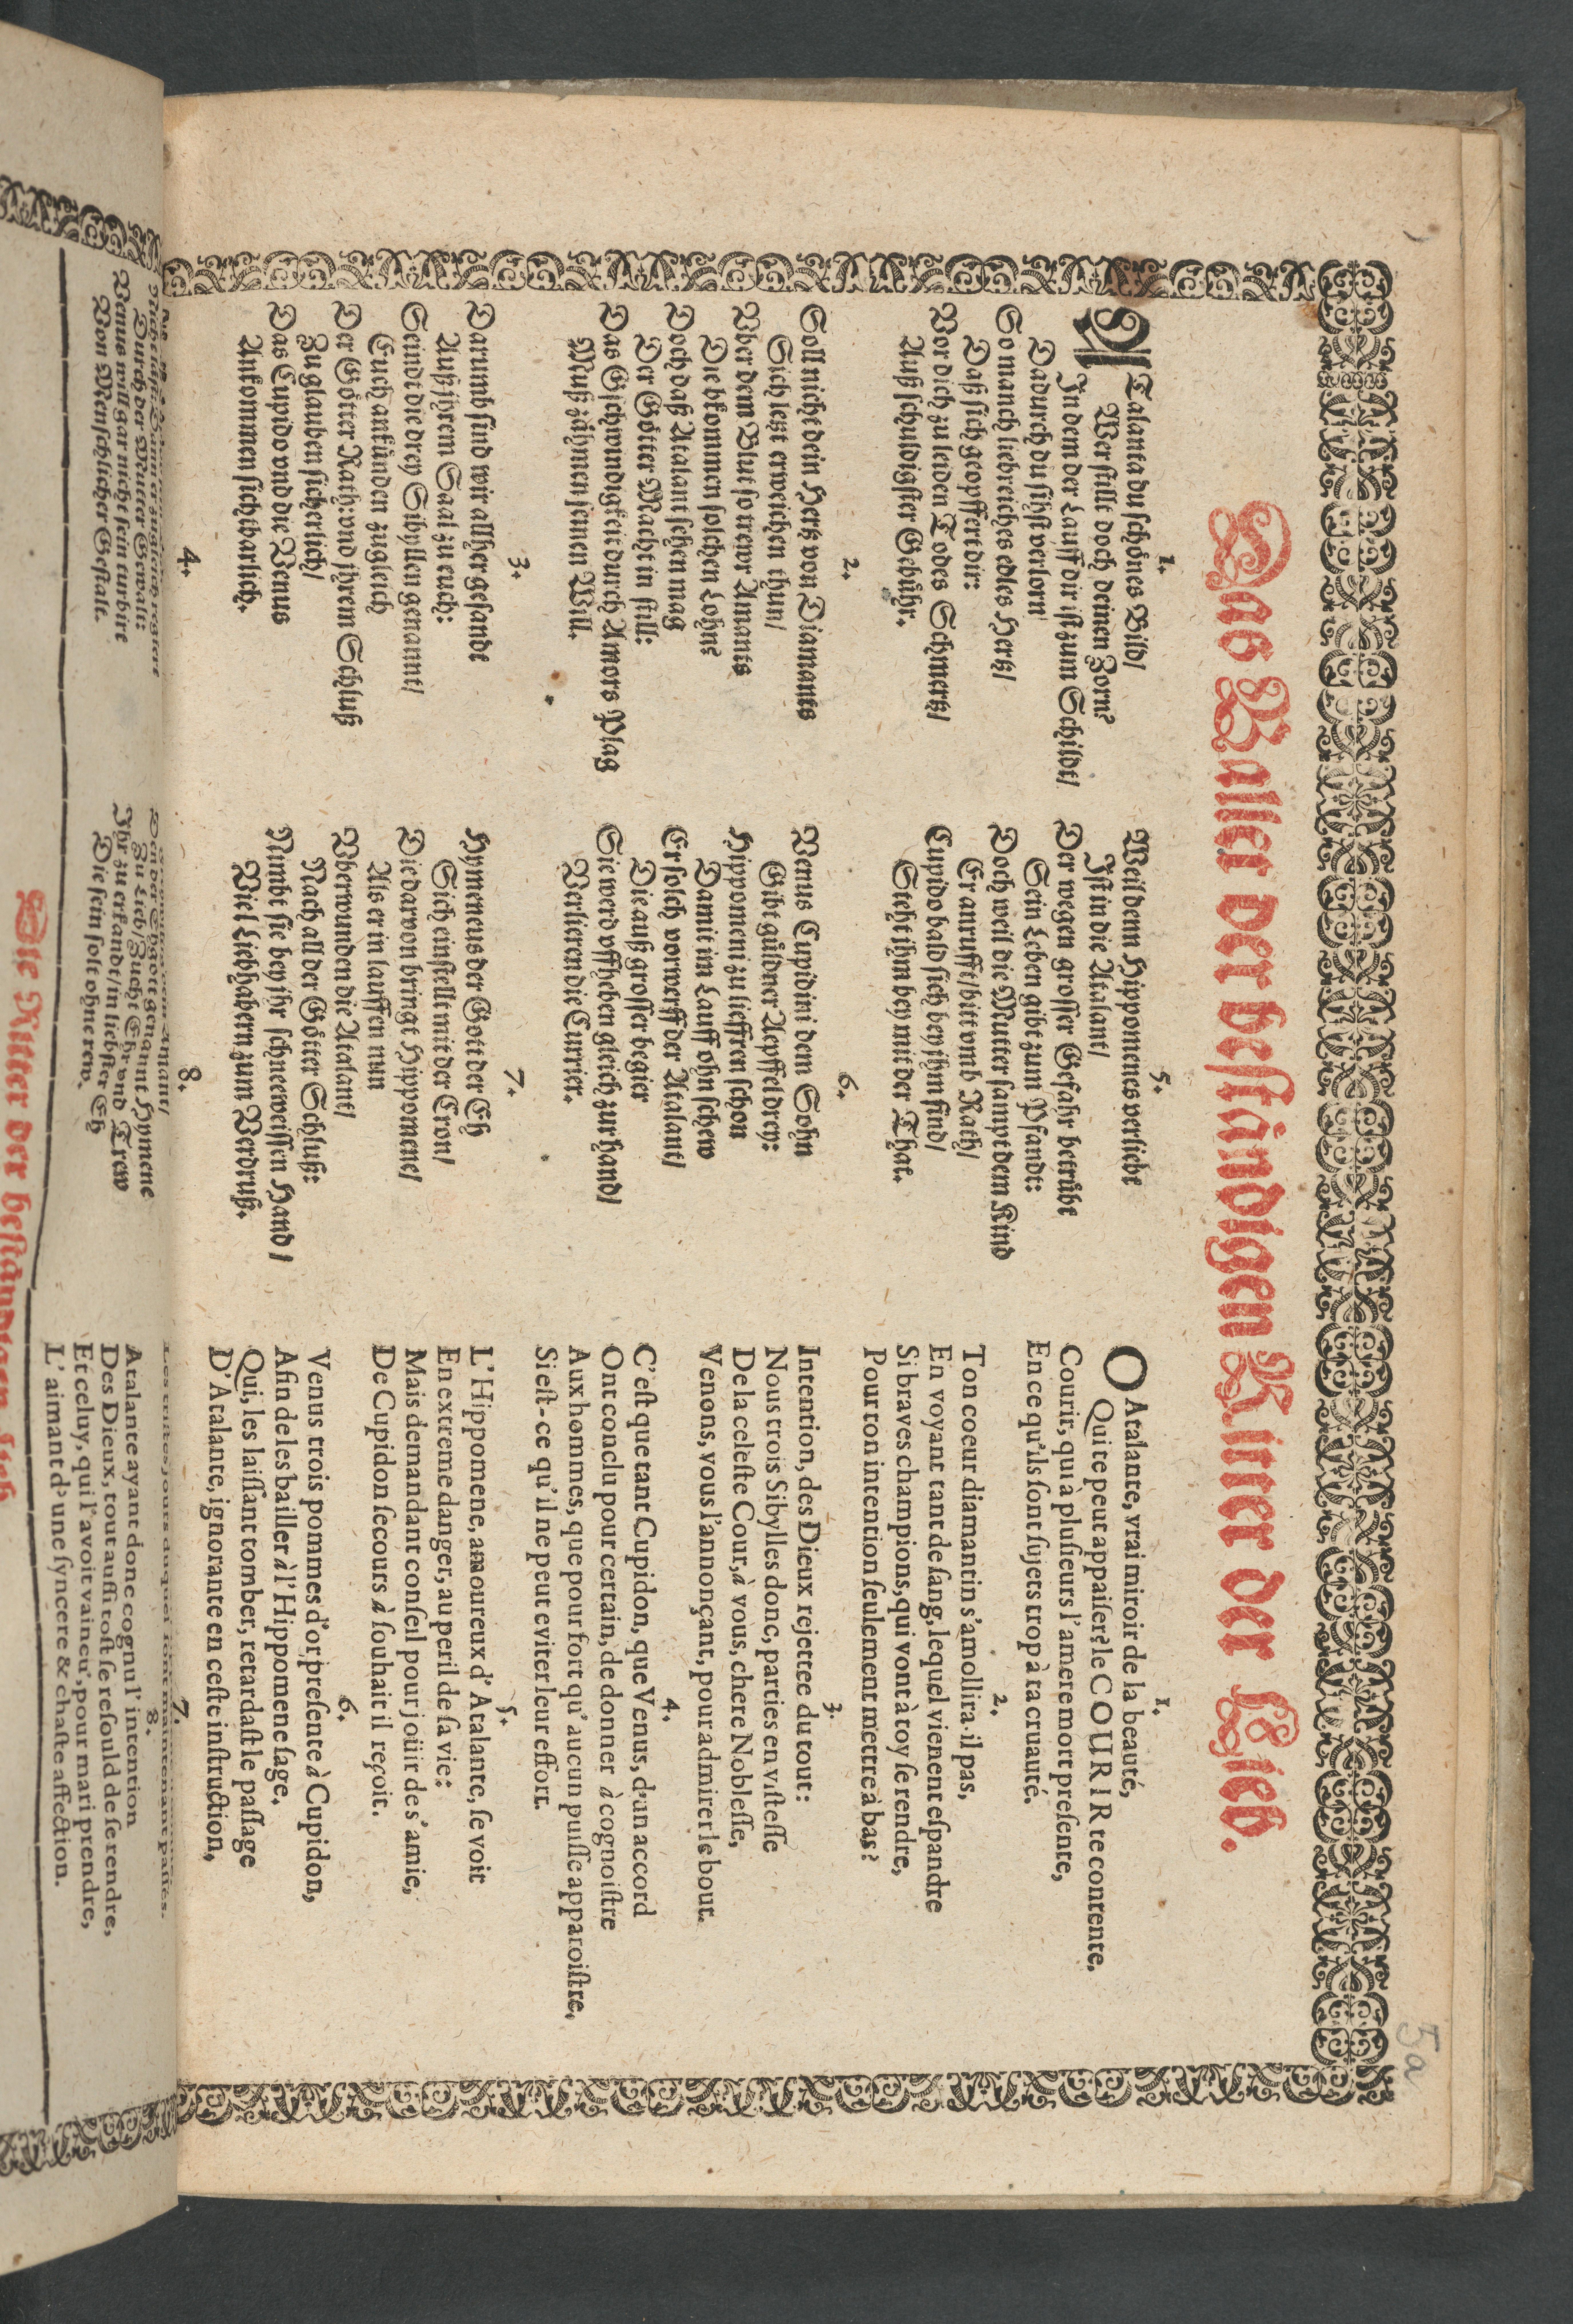 Das Ballet der beständigen Ritter der Lieb.
1.
ATalanta du schönes Bild/
Wer stillt doch deinen Zorn?
In dem der Lauff dir ist zum Schildt/
Dadurch du sihst verlorn
So manch liebreiches edles Hertz/
Daß sich geopffert dir:
Vor dich zu leiden Todes Schmertz/
Auß schuldigster Gebühr.
2.
Soll nicht dein Hertz von Diamants
Sich letzt erweichen thun/
Vber dem Blut so trewr Amants
Die bkommen solchen Lohn?
Doch daß Atalant sehen mag
Der Götter Macht in still:
Das Gschwindigkeit durch Amors Plag
Muß zähmen seinen Will.
3.
Darumb sind wir allher gesandt
Auß jhrem Saal zu euch:
Seindt die drey Sibyllen genannt/
Euch ankünden zugleich
Der Götter Rath: vnd jhrem Schluß
Zu glauben sicherlich/
Das Cupido vnd die Venus
Ankommen sichtbarlich.
4.
Durch der Mutter Gewalt:
Venus will gar nicht sein turbirt
Von Menschlicher Gestalt.
5.
Weil denn Hippomenes verliebt
Ist in die Atalant/
Der wegen grosser Gefahr betrübt
Sein Leben gibt zum Pfandt:
Doch weil die Mutter sampt dem Kind
Er anrufft/ bitt vmb Rath/
Cupido bald sich bey jhm find/
Steht ihm bey mit der That.
6.
Venus Cupidini dem Sohn
Gibt güldner Aepffel drey:
Hippomeni zu lieffren schon
Damit im Lauff ohn schew
Er solch vorwerff der Atalant/
Die auß grosser begier
Sie werd vffheben gleich zur hand/
Verlieren die Currier.
7.
Hymeneus der Gott der Eh
Sich einstellt mit der Cron/
Die darvon bringt Hippomene/
Als er in lauffen nun
Vberwunden die Atalant/
Nach all der Götter Schluß:
Nimbt sie bey jhr schneeweissen Hand/
Viel Liebhabern zum Verdruß.
8.
Den der Ehgott genannt Hymene
Zu Lieb/ Zucht Ehr vnd Trew
Ihr zu erkandt/ in liebster Eh
Die sein solt ohne rew.
1.
O Atalante, vrai miroir de la beauté,
Qui te peut appaiser? le COURIR te contente.
Courir, qui à plusieurs l'amere mort presente,
En ce qu'ils sont sujets trop à ta cruauté.
2.
Ton coeur diamantin s'amollira-il pas,
En voyant tant de sang, lequel vienent espandre
Si braves champions, qui vont à toy se rendre,
Pour ton intention seulement mettre à bas?
3.
Intention, des Dieux rejettee du tout:
Nous trois Sibylles donc, parties en vistesse
De la celeste Cour, à vous, chere Noblesse,
Venons, vous l'annonçant, pour admirer le bout.
4.
C'est que tant Cupidon, que Venus, d'un accord
Ont conclu pour certain, de donner à cognoistre
Aux hommes, que pour fort qu'aucun puisse apparoistre,
Si est-ce qu'il ne peut eviter leur effort.
5.
L'Hippomene, amoureux d'Atalante, se voit
En extreme danger, au peril de sa vie:
Mais demandant conseil pour joüir de s'amie,
De Cupidon secours à souhait il reçoit.
6.
Venus trois pommes d'or presente à Cupidon,
Afin de les bailler à l'Hippomene sage,
Qui, les laissant tomber, retardast le passage
D'Atalante, ignorante en ceste instruction,
7.
8.
Atalante ayant donc cognu l'intention
Des Dieux, tout aussi tost se resould de se rendre,
Et celuy, qui l'avoit vaincu', pour mari prendre,
L'aimant d'une syncere & chaste affection.
Die Ritter der beständigen Lieb
5a